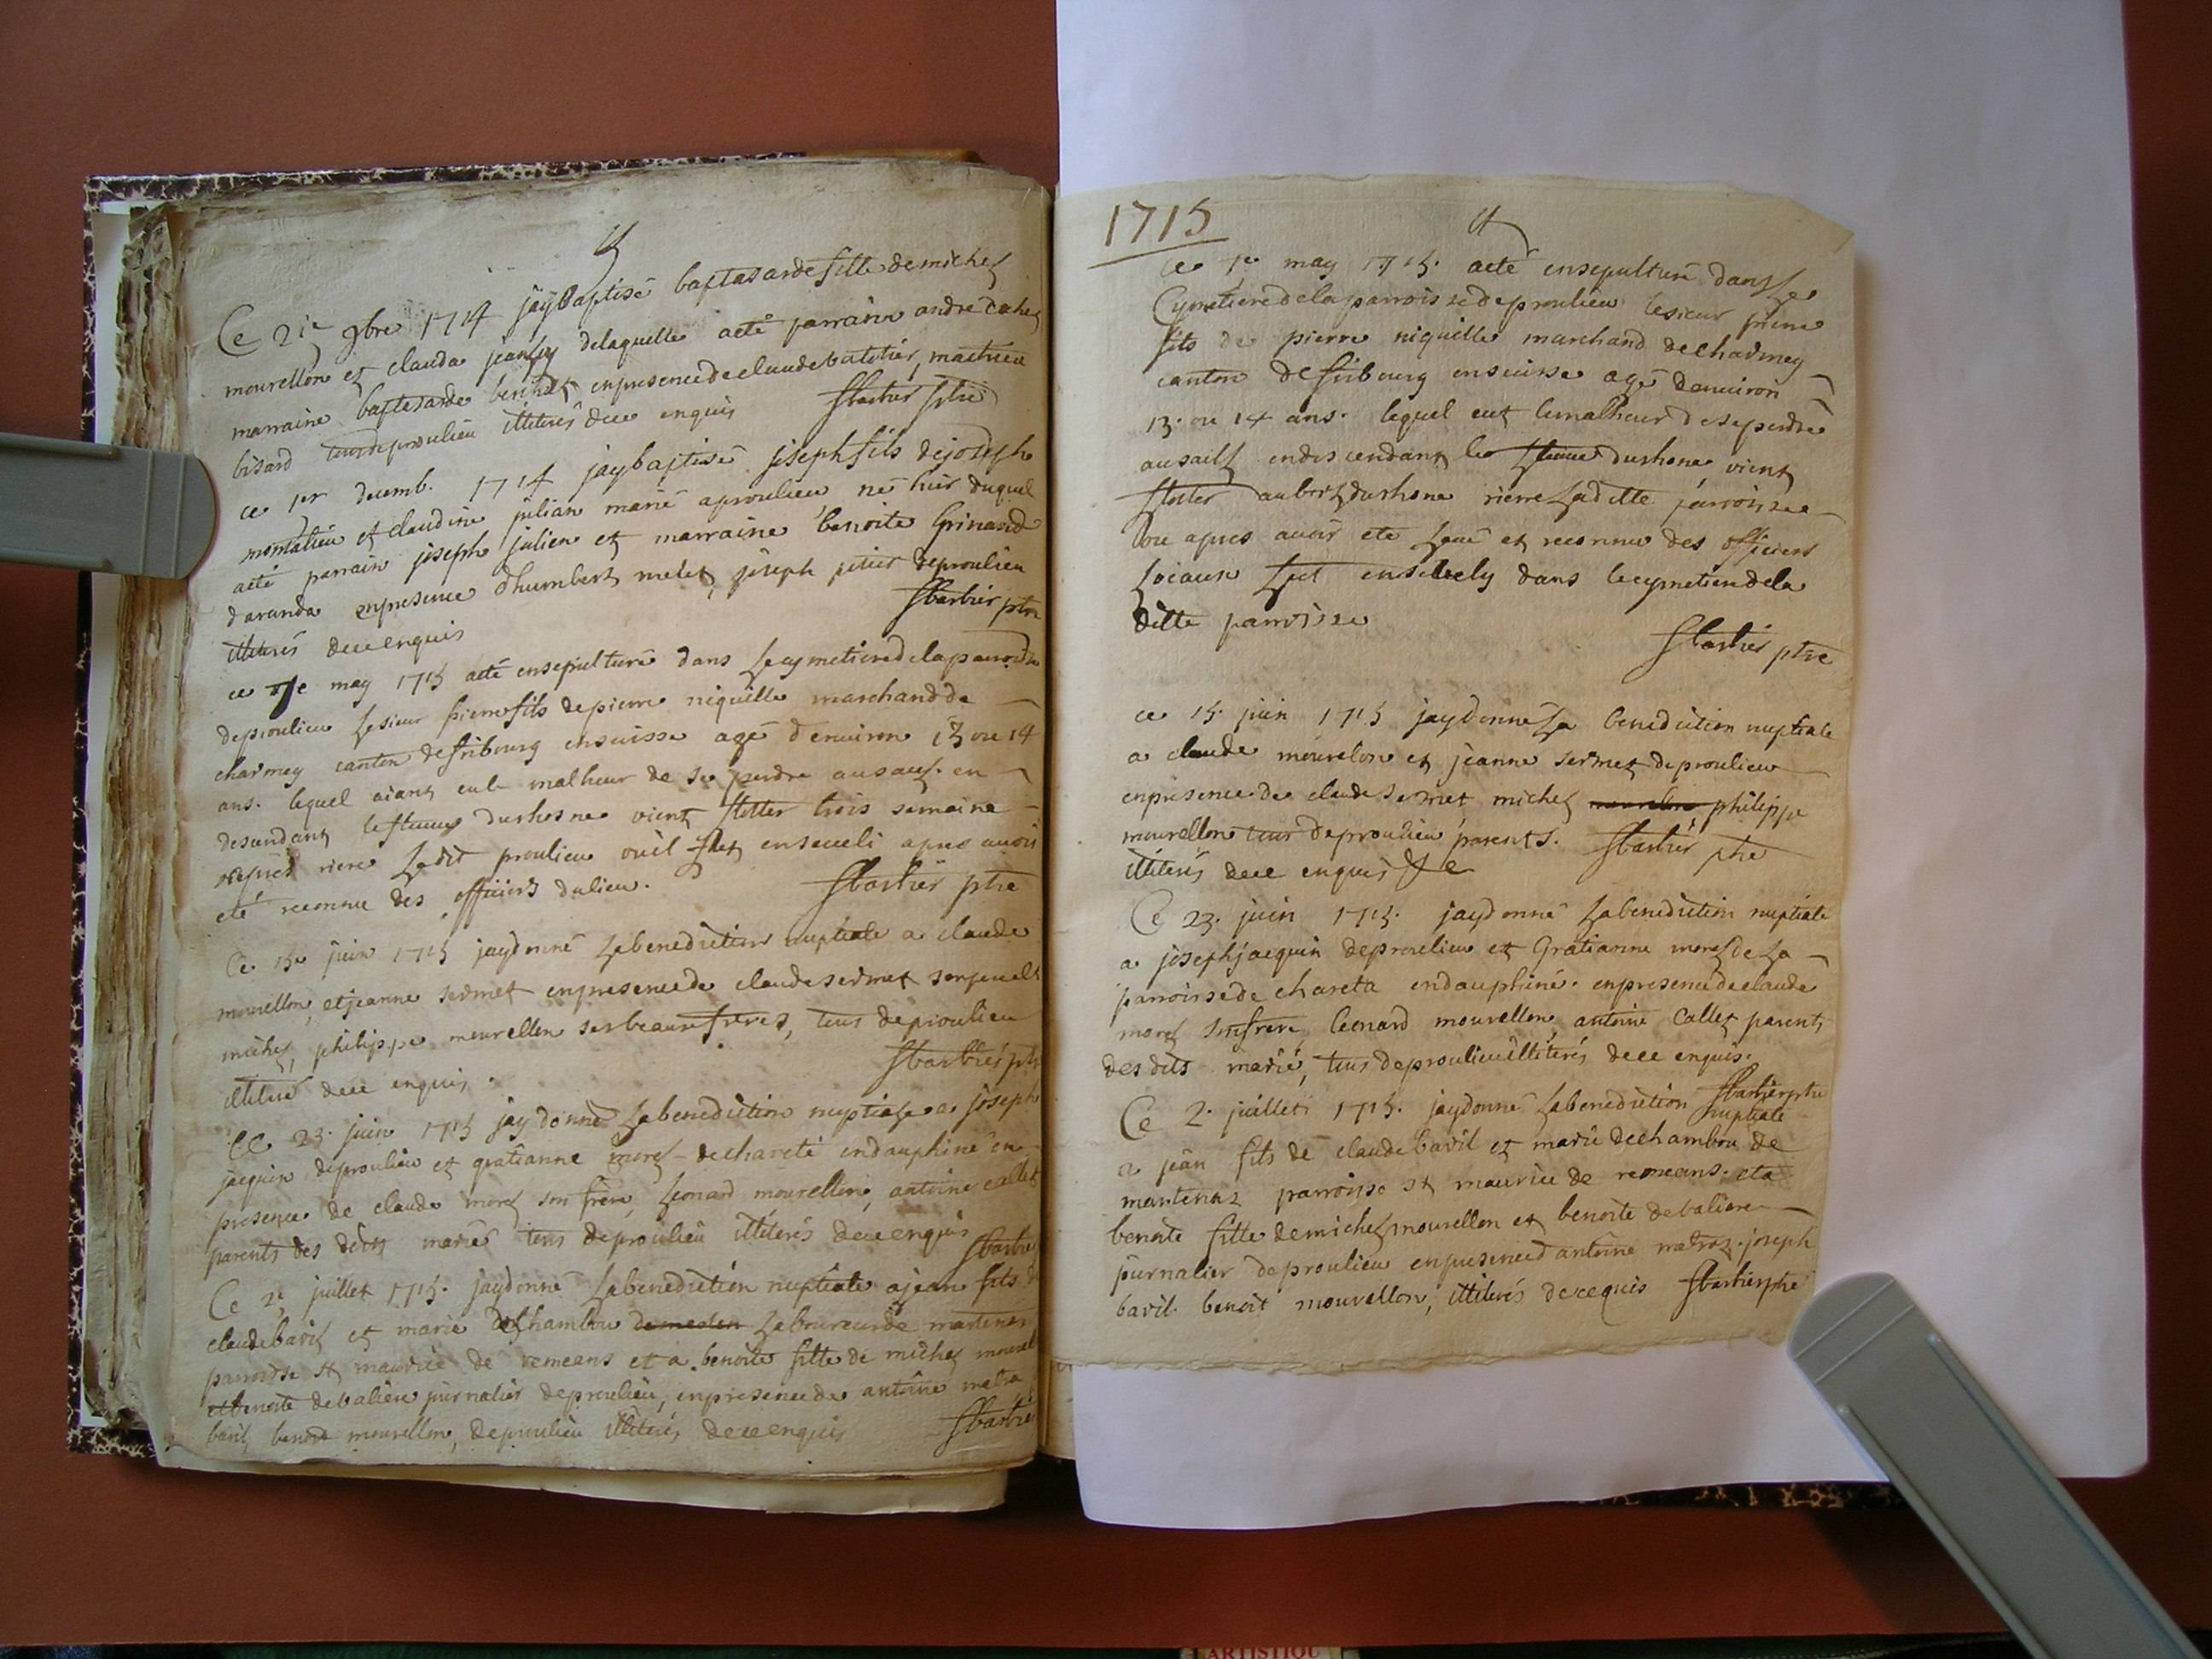 Ce 21e 9bre 1714 jay Baptisé baptasarde fille de michel
mourellon et clauda jeanlly delaquelle aété parrain andré cahel
marraine baptesarde en presence de claude batetier, mathieu
bisard tous de proulieu illiterés de ce enquis Sbarbier ptre
ce 1er decemb. 1714 jay baptisé joseph fils de joseph
montalieu et claudine julian marié a proulieu né hier duquel
aeté parrain joseph julien et marraine benoite Grinand
daranda en presence d'humbert melet, joseph petier de proulieu
illiterés de ce enquis Sbarbier ptre
ce 1e may 1715 aeté ensepulturé dans le cymetiere de la parroisse
de proulieu le sieur pierre fils de pierre niquille marchand de
charmey canton de fribourg en suisse agé d'environ 13 ou 14
ans. lequel aiant eu le malheur de se perdre au saut en
descendant le fleuve du rhosne vient flotter trois semaine
apres riere ledit proulieu ou il fut enseveli apres avoir
eté reconnu des officiers du lieu. Sbarbier ptre
Ce 15e juin 1715 jay donné la benediction nuptiale a claude
mourellon, et jeanne sermet en presence de claude sermet son
michel, philippe mourellon ses beaux freres, tous de proulieu
illiteré de ce enquis. Sbarbier ptre
Ce 23. juin 1715 jay donné la benediction nuptiale a joseph
jacquin de proulieu et gratianne morel de chareté en dauphiné en
presence de claude morel son frere, leonard mourellon, antoine callet
parents des dits mariés tous de proulieu illiterés de ce enquis Sbarbier
Ce 2e juillet 1715. jay donné la benediction nuptiale a jean fils de
claude baril et marie dechambou laboureur de martenas
parroisse st maurice de remeans et a benoite fille de michel mourel
et benoite debaliere journalier de proulieu, en presence de antoine matra
baril, benoit mourellon, de proulieu illiterés de ce enquis Sbarbier
1715
Ce 1e may 1715. aeté ensepulturé dans le
Cymetiere de la parroisse de proulieu le sieur pierre
fils de pierre niquille marchand de charmey
canton de fribourg en suisse agé d'environ
13. ou 14 ans. lequel eut le malheur de se perdre
au sault en descendant le fleuve du rhone vient
flotter au bort du rhone riere la ditte parroisse
ou apres avoir eté levé et reconnu des officiers
locaux fut ensevely dans le cymetiere de la
ditte parroisse
Sbarbier ptre
ce 15. juin 1715 jay donné la benediction nuptiale
a claude mourelon et jeanne sermet de proulieu
en presence de claude sermet michel mourelon philippe
mourellon tous de proulieu parents. Sbarbier ptre
illiterés de ce enquis
Ce 23. juin 1715. jay donné la benediction nuptiale
a joseph jacquin de proulieu et Gratianne morel de la
parroisse de chareta en dauphiné. en presence de claude
morel son frere, leonard mourellon, antoine callet parents
des dits marié, tous de proulieu illiterés de ce enquis.
Sbarbier ptre
Ce 2. juillet 1715. jay donné la benediction nuptiale
a jean fils de claude baril et marie dechambou de
martenaz parroisse st maurice de remeans. et a
benoite fille de michel mourellon et benoite debaliere
journalier de proulieu en presence d antoine matraz. joseph
baril. benoit mourellon, illiterés de ce quis Sbarbier ptre
ARTISTIQU